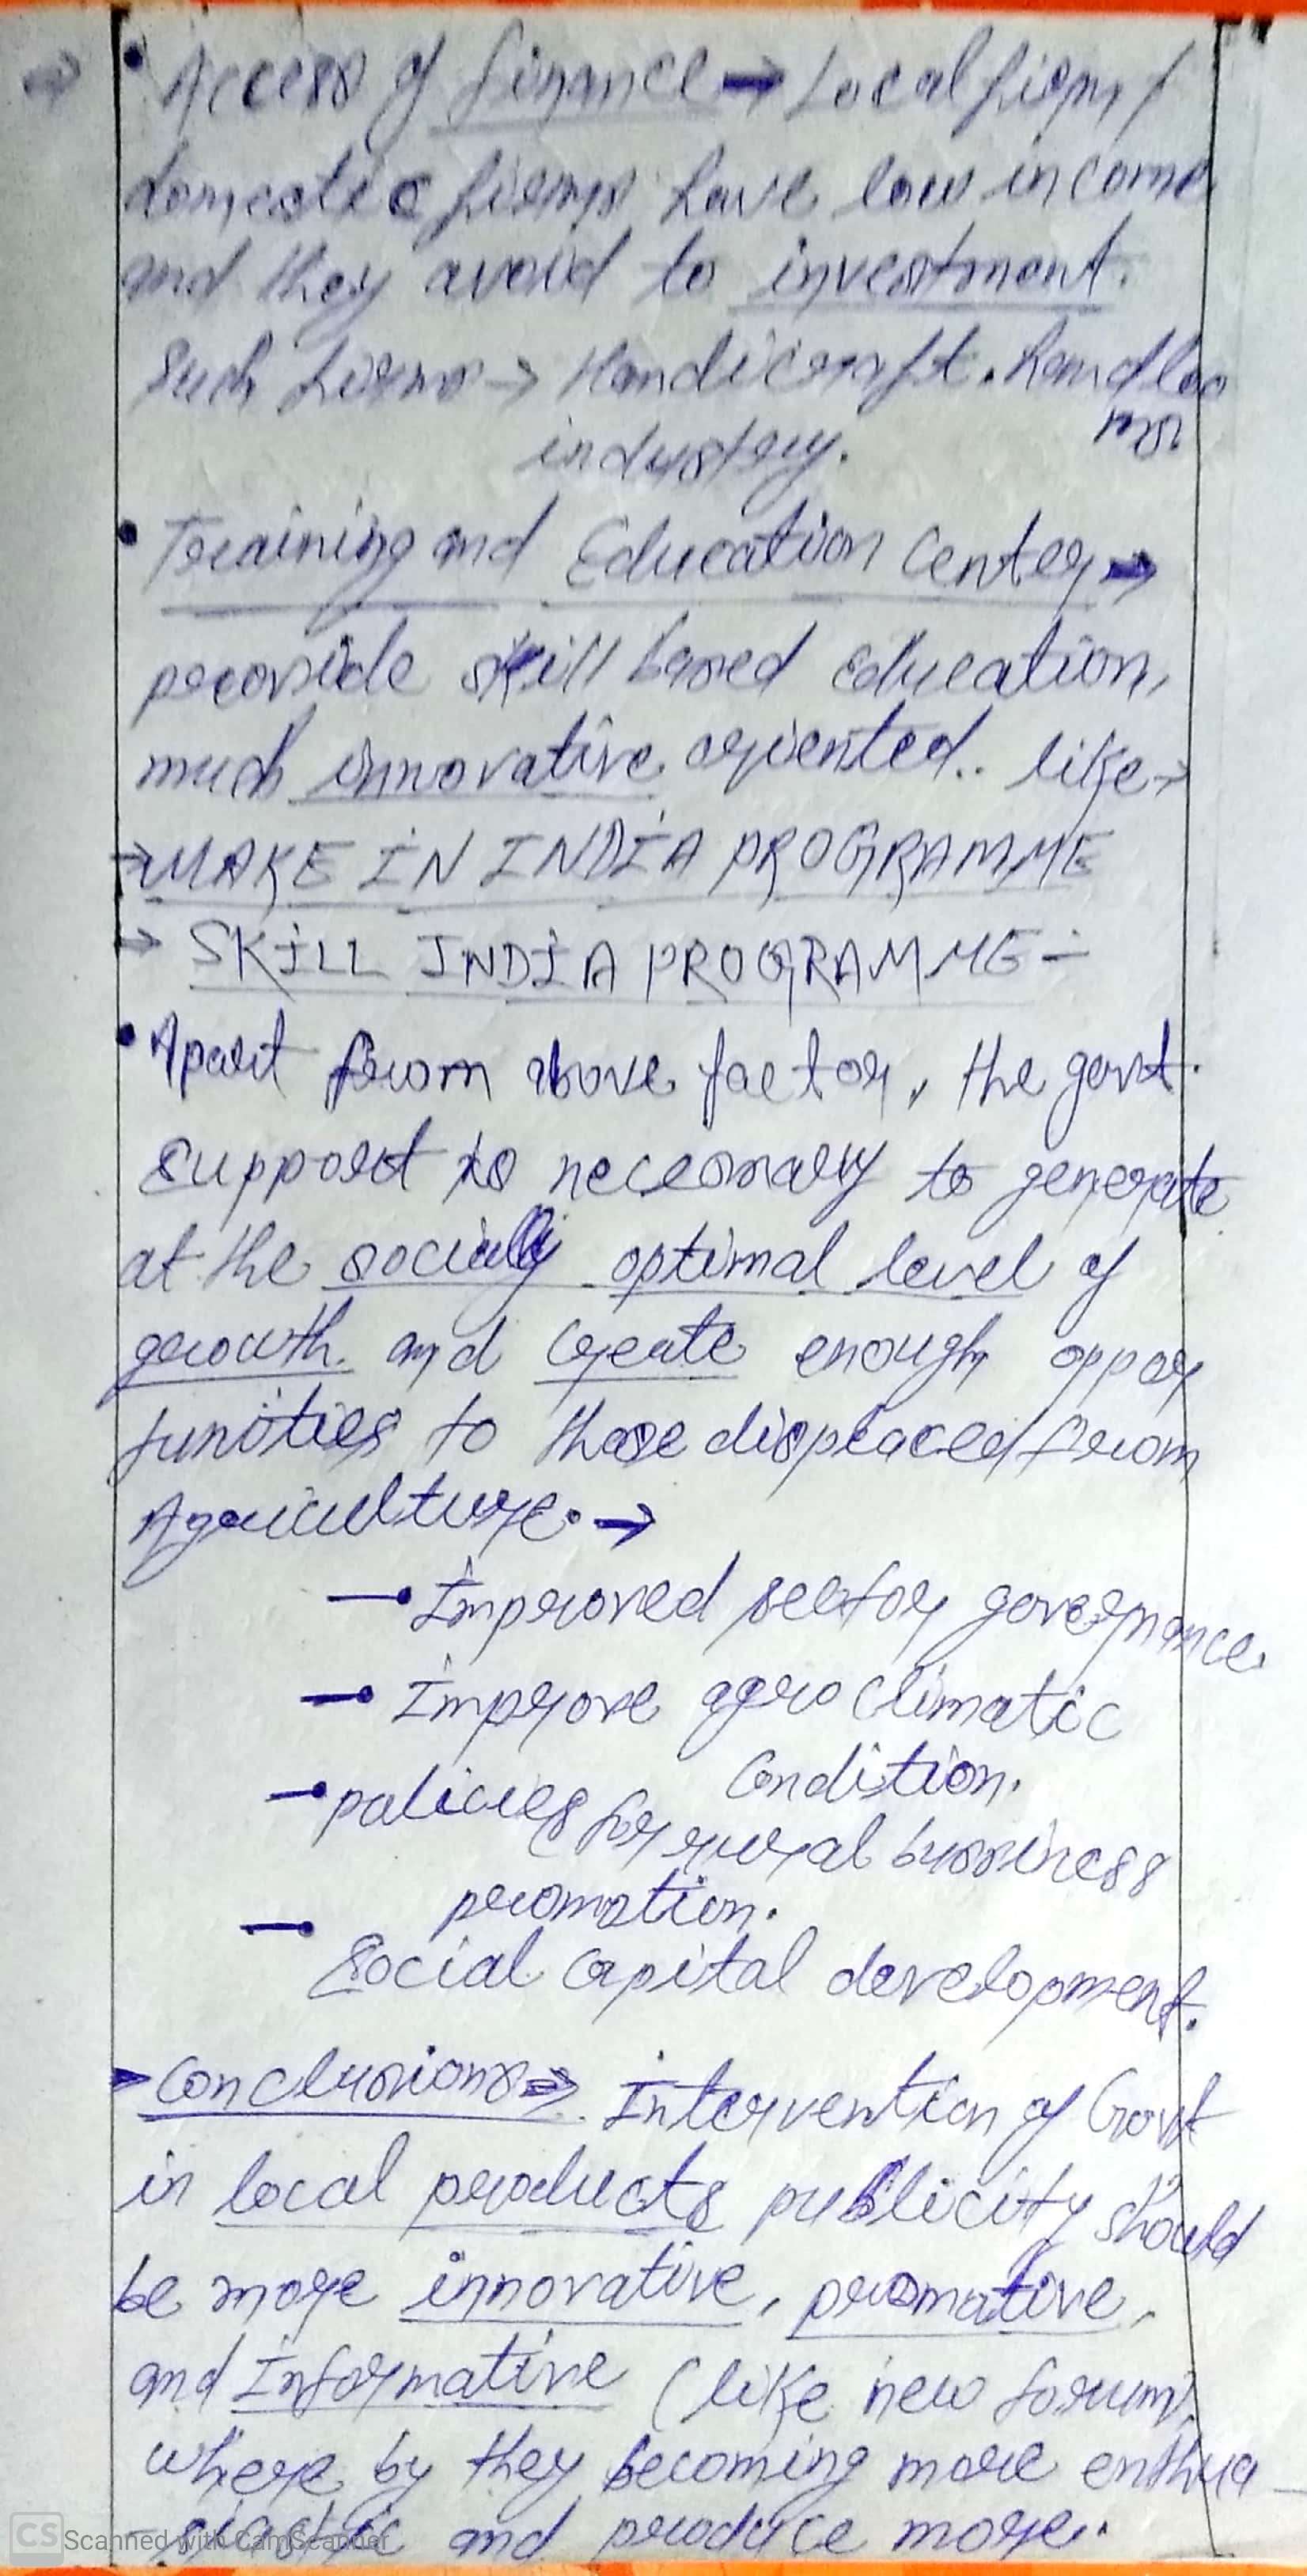 ⇒ • Access of finance → Local firms/
domestic firms have low income
and they avoid to investment.
Such firms → Handicraft. handloo
ms.
industry.
• Training and Education Center →
provide skill based education,
much innovative oriented.. like →
→ MAKE IN INDIA PROGRAMME
→ SKILL INDIA PROGRAMME -
• Apart from above factor, the govt.
support is necessary to generate
at the socially optimal level of
growth. and create enough oppor
tunities to those displaced from
Agriculture. →
— Improved sector governance.
— Improve agro climatic
condition.
— policies for rural bussiness
promotion.
— Social capital development.
► Conclusions ⇒ Intervention of Govt
in local products publicity should
be more innovative, promotive,
and Informative (like new forum)
where by they becoming more enthua
- siastic and produce more.
CS Scanned with CamScanner